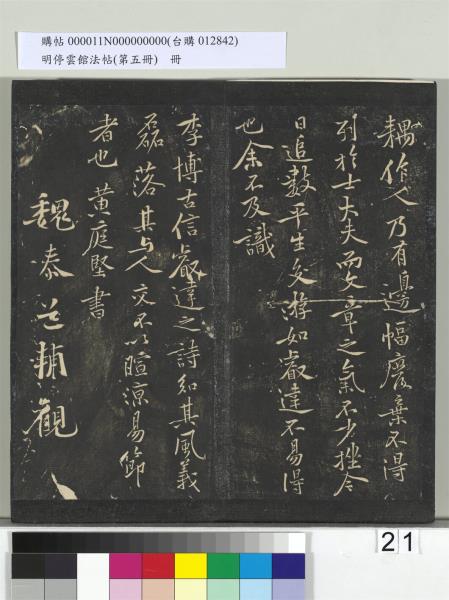 購帖 000011N000000000(台購 012842)
明停雲館法帖(第五冊) 冊
耦作人乃有邊幅廢棄不得
列於士大夫而文章之氣不少挫今
日追數平生交游如叡達不易得
也余不及識
李博古信叡達之詩知其風義
磊落其與人交不以暄涼易節
者也黃庭堅書
魏泰道輔觀
21